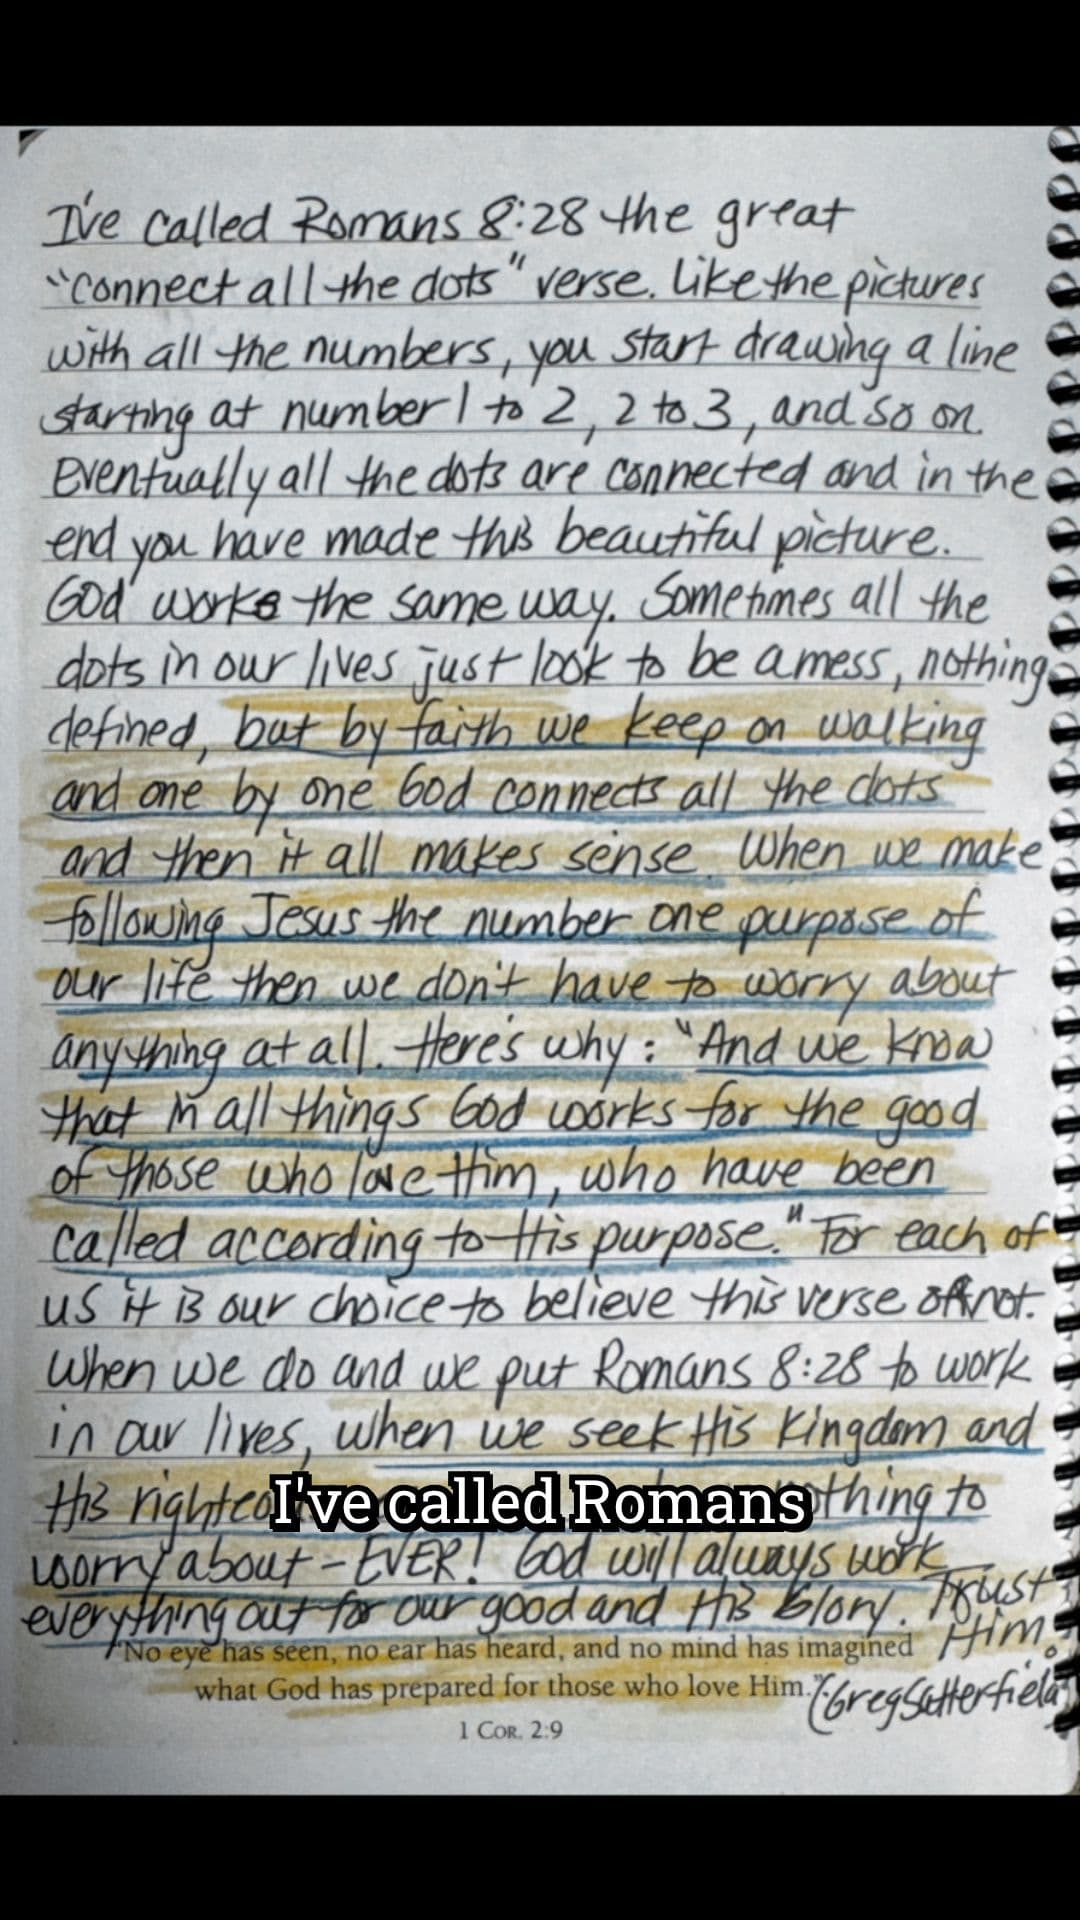 I've called Romans 8:28 the great
"connect all the dots" verse. Like the pictures
with all the numbers, you start drawing a line
starting at number 1 to 2, 2 to 3, and so on.
Eventually all the dots are connected and in the
end you have made this beautiful picture.
God works the same way. Sometimes all the
dots in our lives just look to be a mess, nothing
defined, but by faith we keep on walking
and one by one God connects all the dots
and then it all makes sense. When we make
following Jesus the number one purpose of
our life then we don't have to worry about
anything at all. Here's why: "And we know
that in all things God works for the good
of those who love Him, who have been
called according to His purpose." For each of
us it is our choice to believe this verse or not.
When we do and we put Romans 8:28 to work
in our lives, when we seek His Kingdom and
His
I've called Romans
to
worry about - EVER! God will always work
everything out for our good and His Glory. Trust
Him.
"No eye has seen, no ear has heard, and no mind has imagined
what God has prepared for those who love Him."
(Greg Satterfield)
1 COR. 2:9